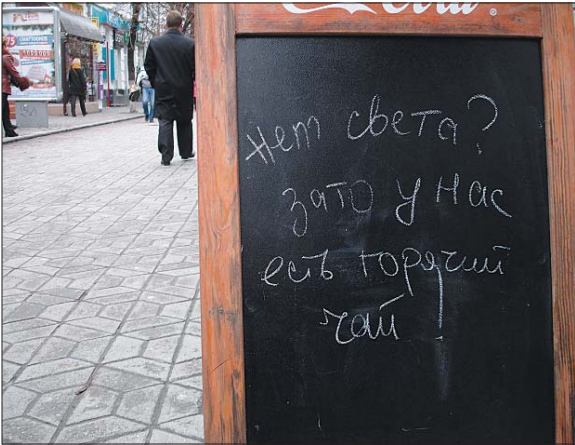 Coca-Cola
Нет света?
зато у нас
есть горячий
чай!